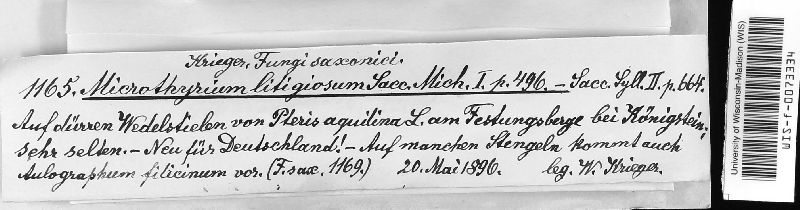 Krieger, Fungi saxonici.
1165. Microthyrium litigiosum Sacc. Mich. I. p. 496. – Sacc. Syll. II. p. 664.
Auf dürren Wedelstielen von Pteris aquilina L. am Festungsberge bei Königstein,
sehr selten. – Neu für Deutschland! – Auf manchen Stengeln kommt auch
Aulographum filicinum vor. (F. sax. 1169.) 20. Mai 1896. leg. W. Krieger.
University of Wisconsin-Madison (WIS)
WIS-f-0073334